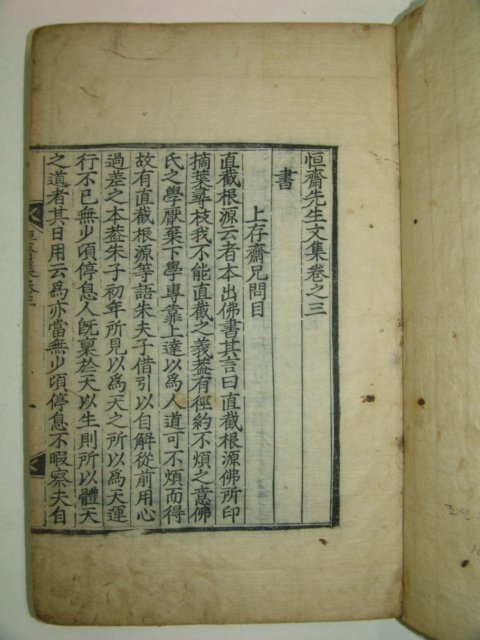 恒齋先生文集卷之三
書
上存齋兄問目
直截根源云者本出佛書其言曰直截根源佛所印
摘葉尋枝我不能直截之義葢有徑約不煩之意佛
氏之學厭棄下學專靠上達以爲人道可不煩而得
故有直截根源等語朱夫子借引以自解從前用心
過差之本葢朱子初年所見以爲天之所以爲天運
行不已無少頃停息人旣稟於天以生則所以體天
之道者其日用云爲亦當無少頃停息不暇察夫自